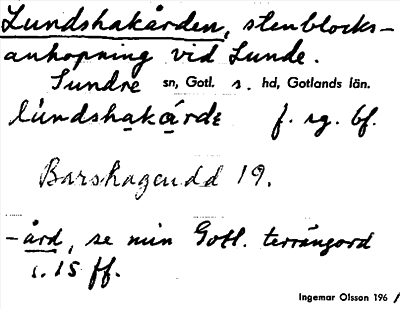 Lundshakården, stenblocks-
anhopning vid Lunde.
Sundre sn, Gotl. s. hd, Gotlands län.
lúndshakárdɛ f. sg. bf.
Barshageudd 19.
-ård, se min Gotl. terrängord
s. 15 ff.
Ingemar Olsson 196 1